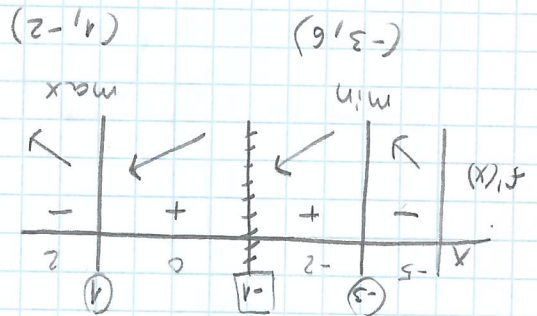 x -5 -3 -2 -1 0 1 2
f'(x) - + + -
min max
(-3, 6) (1, -2)